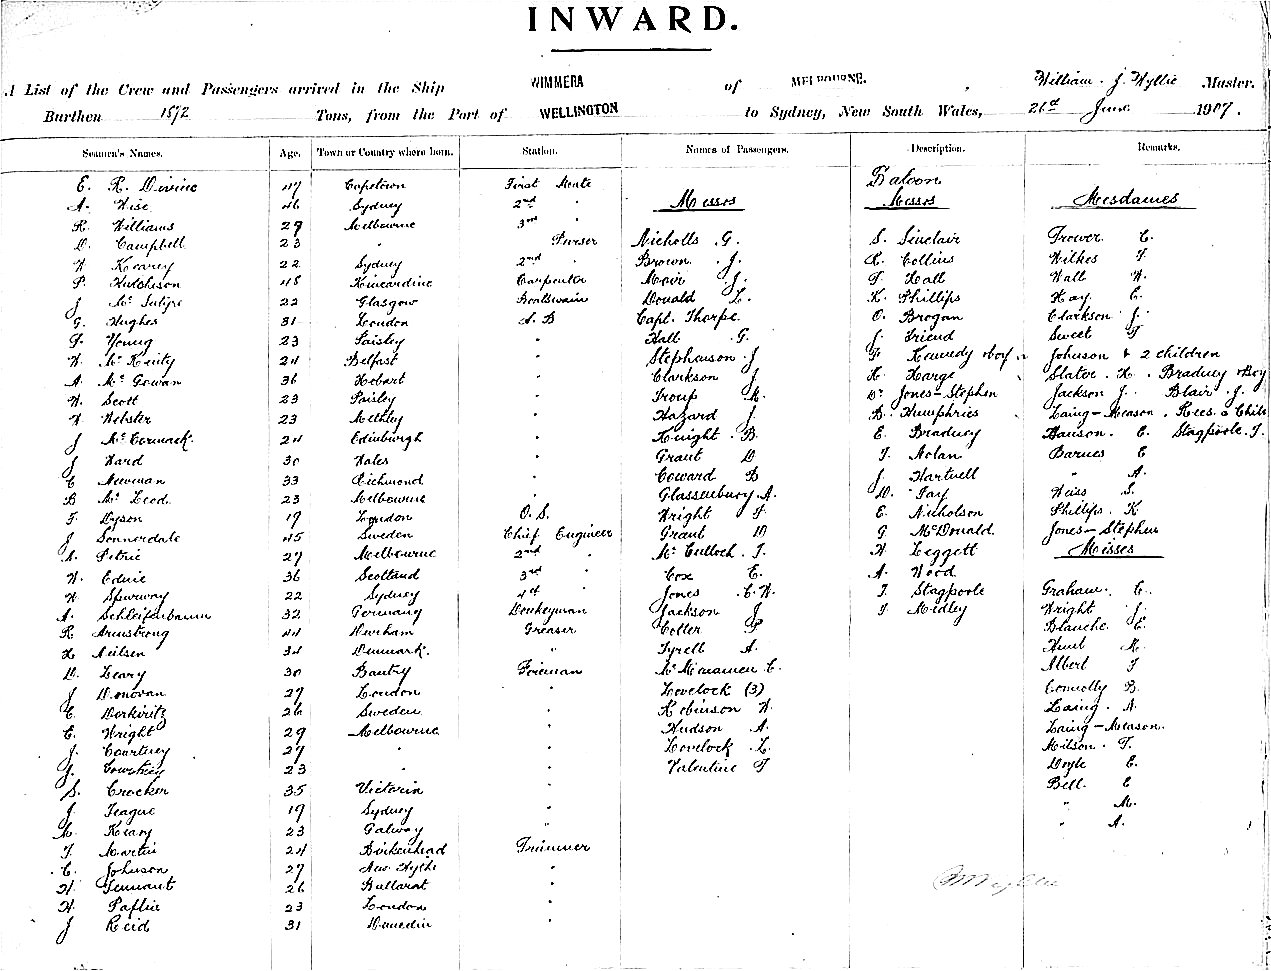 INWARD.
A List of the Crew and Passengers arrived in the Ship WIMMERA of MELBOURNE, William. J. Wyllie Master.
Burthen 1872 Tons, from the Port of WELLINGTON to Sydney, New South Wales, 26th June 1907.
Seamen's Names. Age. Town or Country where born. Station. Names of Passengers. Description. Remarks.
Saloon
E. R. Divine 47 Capetown First Mate
A. Wise 46 Sydney 2nd " Messrs Messrs Mesdames
R. Williams 27 Melbourne 3rd "
D. Campbell 23 " Purser Nicholls .G. S. Sinclair Trower. E.
W. Kearey 22 Sydney 2nd " Brown. J. R. Collins Wilkes F.
P. Hutchison 48 Kincardine Carpenter Moir J. T. Hall Wall W.
J. 22 Glasgow Boatswain Donald L. K. Phillips Hay. E.
G. Hughes 31 London A. B Capt. Thorpe. O. Brogan Clarkson J.
G. Young 23 Paisley " Hall .G. J. Friend Sweet F
W. 24 Belfast " Stephenson .J F. Kennedy + boy Johnson + 2 children
A. McGowan 36 Hobart " Clarkson J H. Harge Slater. H. Braduey + Boy
W. Scott 23 Paisley " Troup M. Dr Jones-Stephen Jackson J. Blair. J.
W Webster 23 " Hazard J. B. Humphries Laing-Meason. Rees. & Child
J McCormack. 24 Edinburgh " Knight .B. E. Braduey Hanson. E. Stagpoole. T.
J Ward 30 Wales " Grant D T. Nolan Barnes E
C Newman 33 Richmond " Coward B J. Hartnell " A.
B McLeod. 23 Melbourne " Glassenbury A. D. Fay Weiss S.
F. Dyson 19 London O. S. Wright F. E. Nicholson Phillips. K
J Sonnerdale 45 Sweden Chief Engineer Grant D G. McDonald. Jones-Stephen
A. Petrie 27 Melbourne 2nd " McCulloch. T. H. Leggett Misses
W. Edwie 36 Scotland 3rd " Cox E. A. Wood
W Spurway 22 Sydney 4th " Jones .C.W. T. Stagpoole Graham. E.
A. Schleifenbaum 32 Germany Donkeyman Jackson J T. Midley Wright J.
R. Armstrong 44 Greaser Cotter P Blanche. E.
H. Neilsen 34 Denmark. " Tyrell A. Hunt M.
D. Leary 30 Bantry Fireman McMenamen C. Albert F
J Donovan 27 London " Lovelock (3) Connolly B.
C. 26 Sweden " Robinson W. Laing. A.
E. Wright 29 Melbourne " Hudson A. Laing-Meason.
J. Courtney 27 " " Lovelock L. Milson. F.
J. 23 " " Valentine F Doyle E.
S. Crocker 35 Victoria " Bell. E
J. Teague 19 Sydney " " M.
M. Keary 23 Galway " " A.
T. Martin 24 Birkenhead Trimmer
C. Johnson 27 "
W. Tennant 26 Ballarat "
W. 23 London "
J Reid 31 Dunedin "
Wyllie